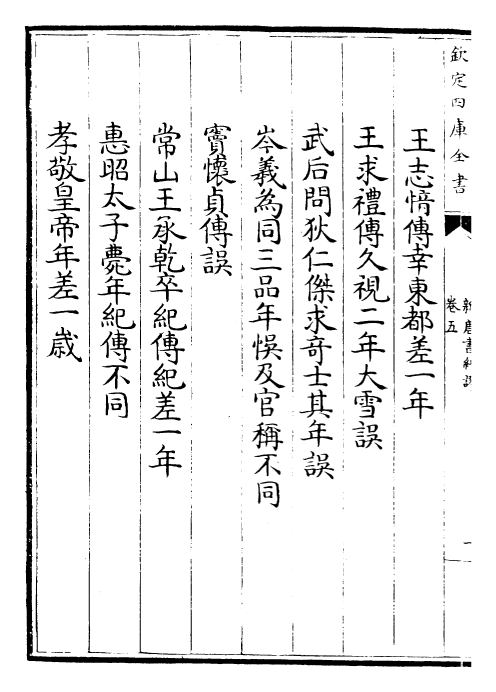 欽定四庫全書
新唐書糾謬
卷五
王志愔傳幸東都差一年
王求禮傳久視二年大雪誤
武后問狄仁傑求奇士其年誤
岑羲為同三品年悞及官稱不同
竇懷貞傳誤
常山王承乾卒紀傳紀差一年
惠昭太子薨年紀傳不同
孝敬皇帝年差一歲